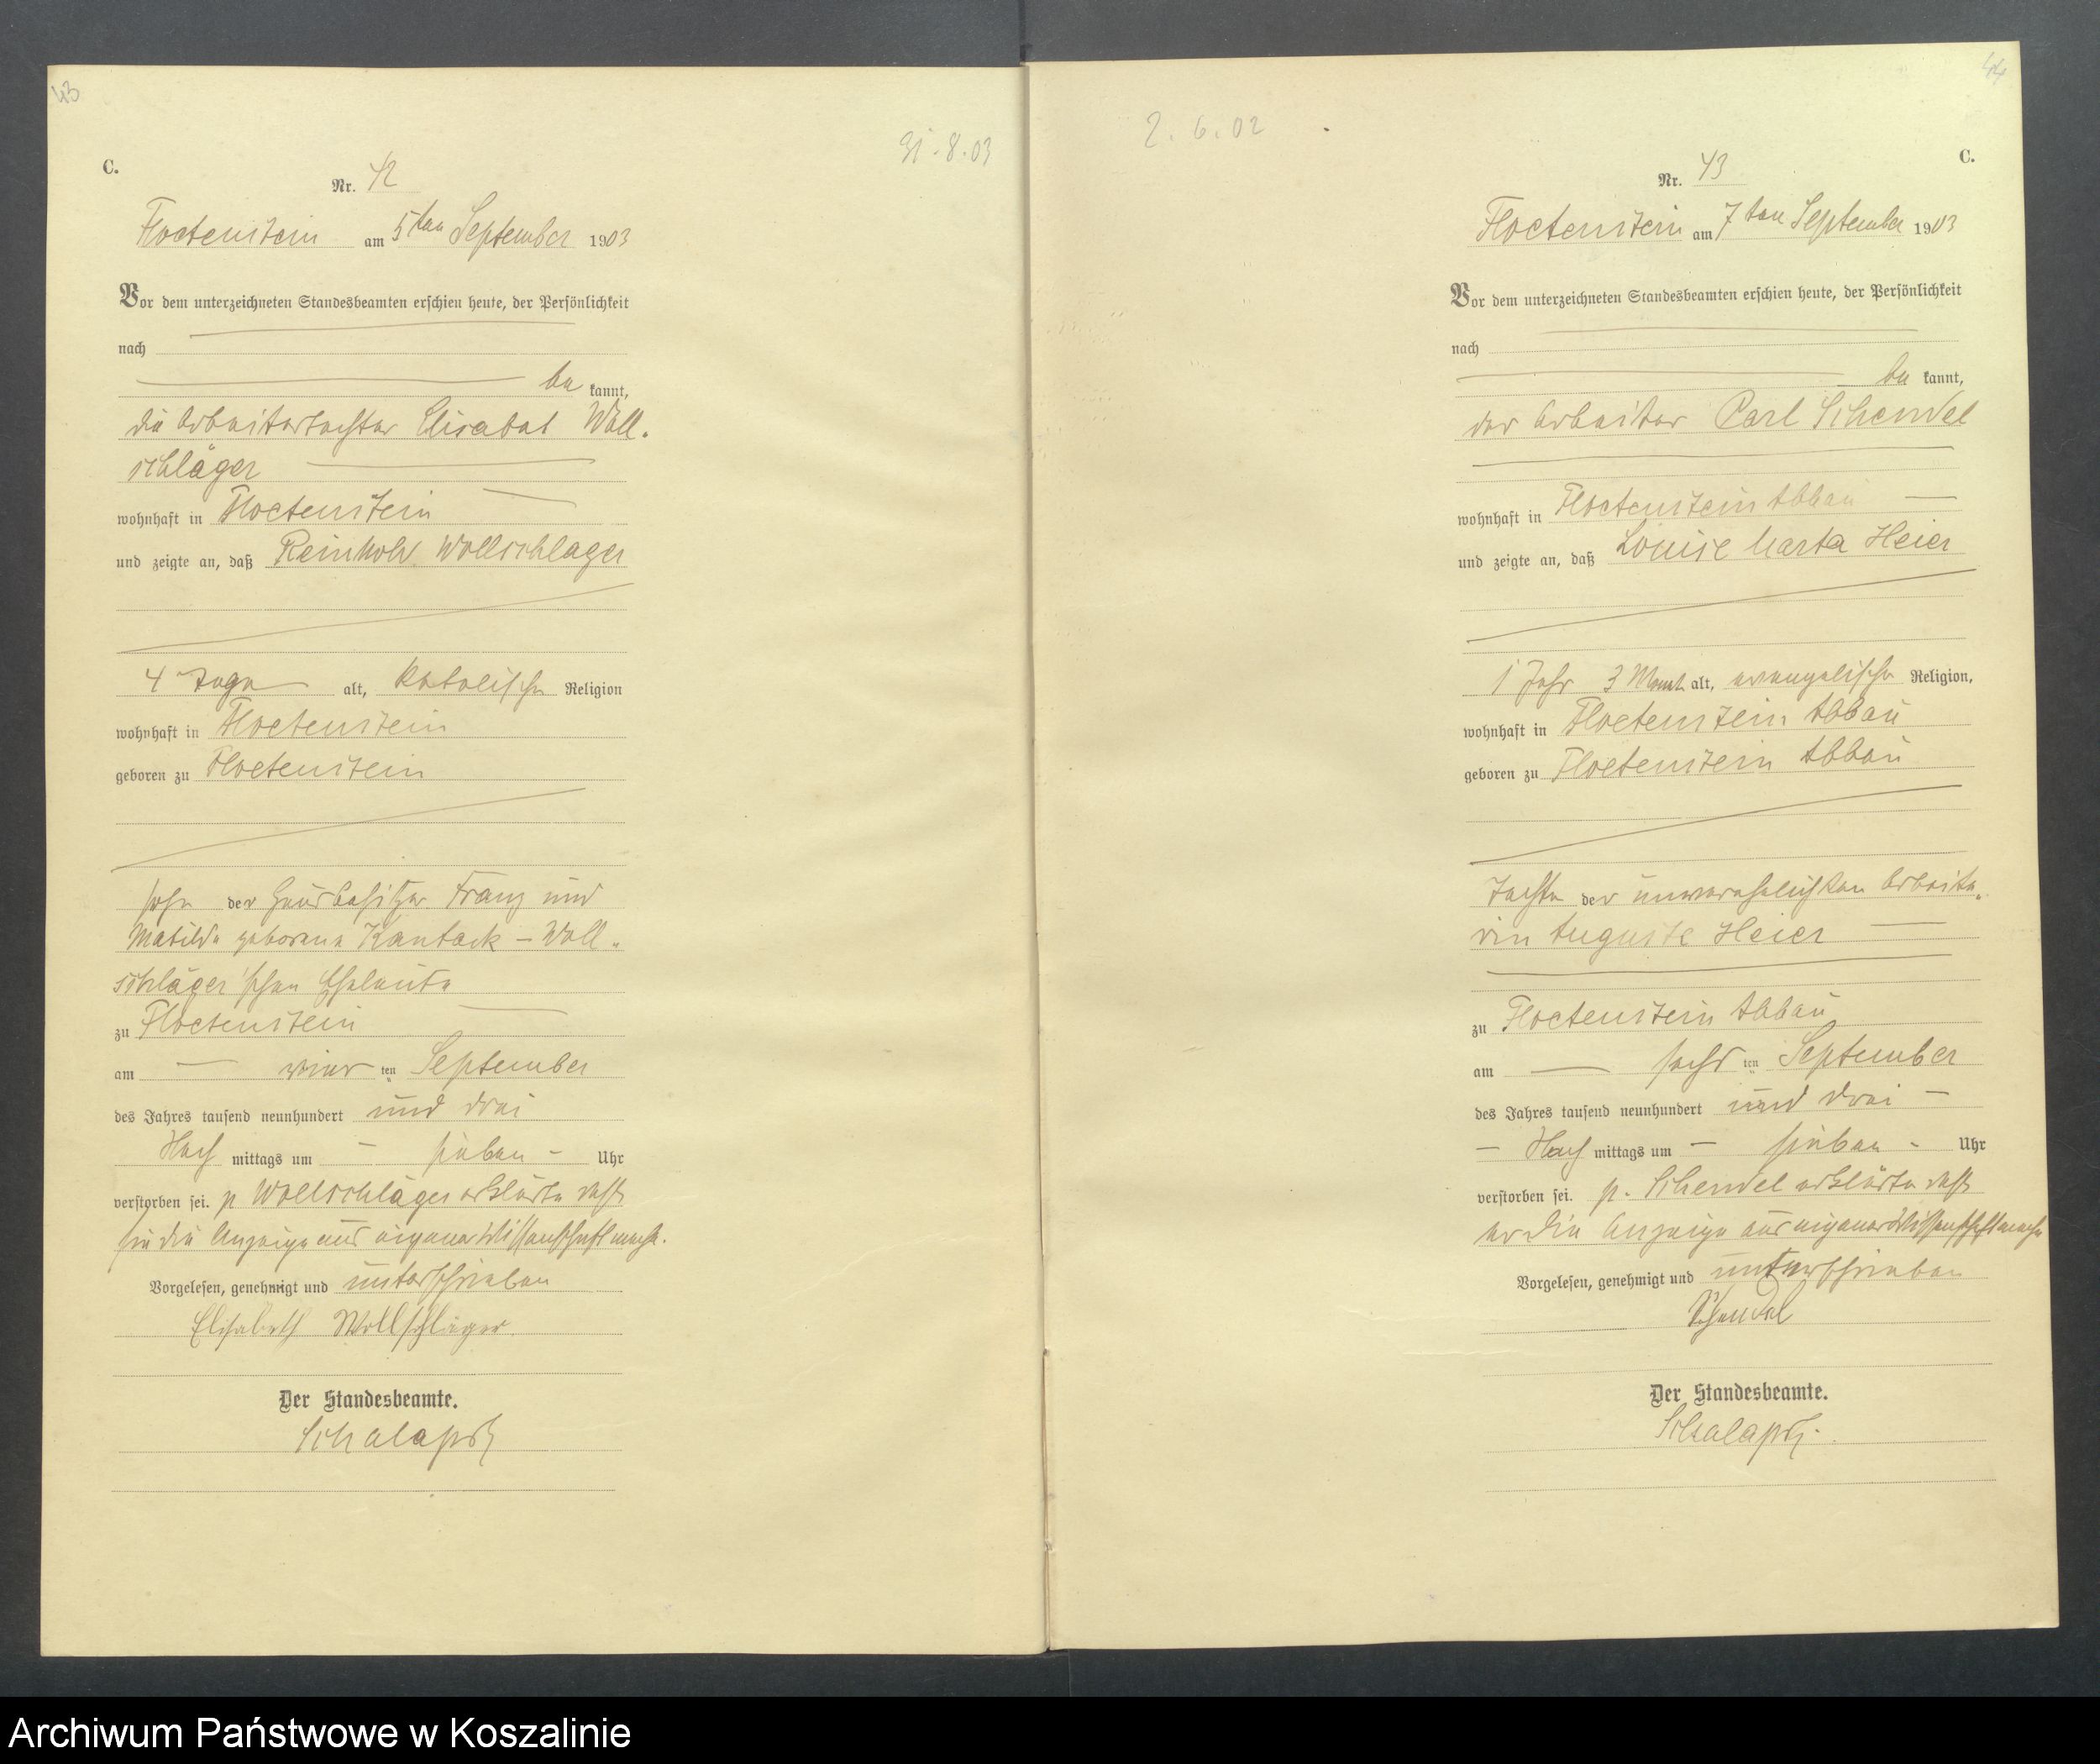 43
31.8.03
C.
Nr. 42
Floetenstein am 5ten September 1903
Vor dem unterzeichneten Standesbeamten erschien heute, der Persönlichkeit
nach
be kannt,
die Arbeitertochter Elisabet Woll-
schläger
wohnhaft in Floetenstein
und zeigte an, daß Reinhold Wollschläger
4 Tage alt, katolischer Religion
wohnhaft in Floetenstein
geboren zu Floetenstein
Sohn der Hausbesitzer Franz und
Matilde geborene Kantack - Woll-
schläger'schen Eheleute
zu Floetenstein
am vier ten September
des Jahres tausend neunhundert und drei
Nach mittags um sieben Uhr
verstorben sei. p Wollschläger erklärte daß
sie die Anzeige aus eigener Wissenschaft mache.
Vorgelesen, genehmigt und unterschrieben
Elisabeth Wollschläger
Der Standesbeamte.
44
2.6.02
C.
Nr. 43
Floetenstein am 7ten September 1903
Vor dem unterzeichneten Standesbeamten erschien heute, der Persönlichkeit
nach
be kannt,
der Arbeiter Carl Schendel
wohnhaft in Floetenstein Abbau
und zeigte an, daß Louise Marta Heier
1 Jahr 3 Monat alt, evangelischer Religion,
wohnhaft in Floetenstein Abbau
geboren zu Floetenstein Abbau
Tochter der unverehelichten Arbeite-
rin Auguste Heier
zu Floetenstein Abbau
am sechs ten September
des Jahres tausend neunhundert und drei
Nach mittags um sieben Uhr
verstorben sei. p. Schendel erklärte daß
er die Anzeige aus eigener Wissenschaft mache
Vorgelesen, genehmigt und unterschrieben
Schendel
Der Standesbeamte.
Archiwum Państwowe w Koszalinie